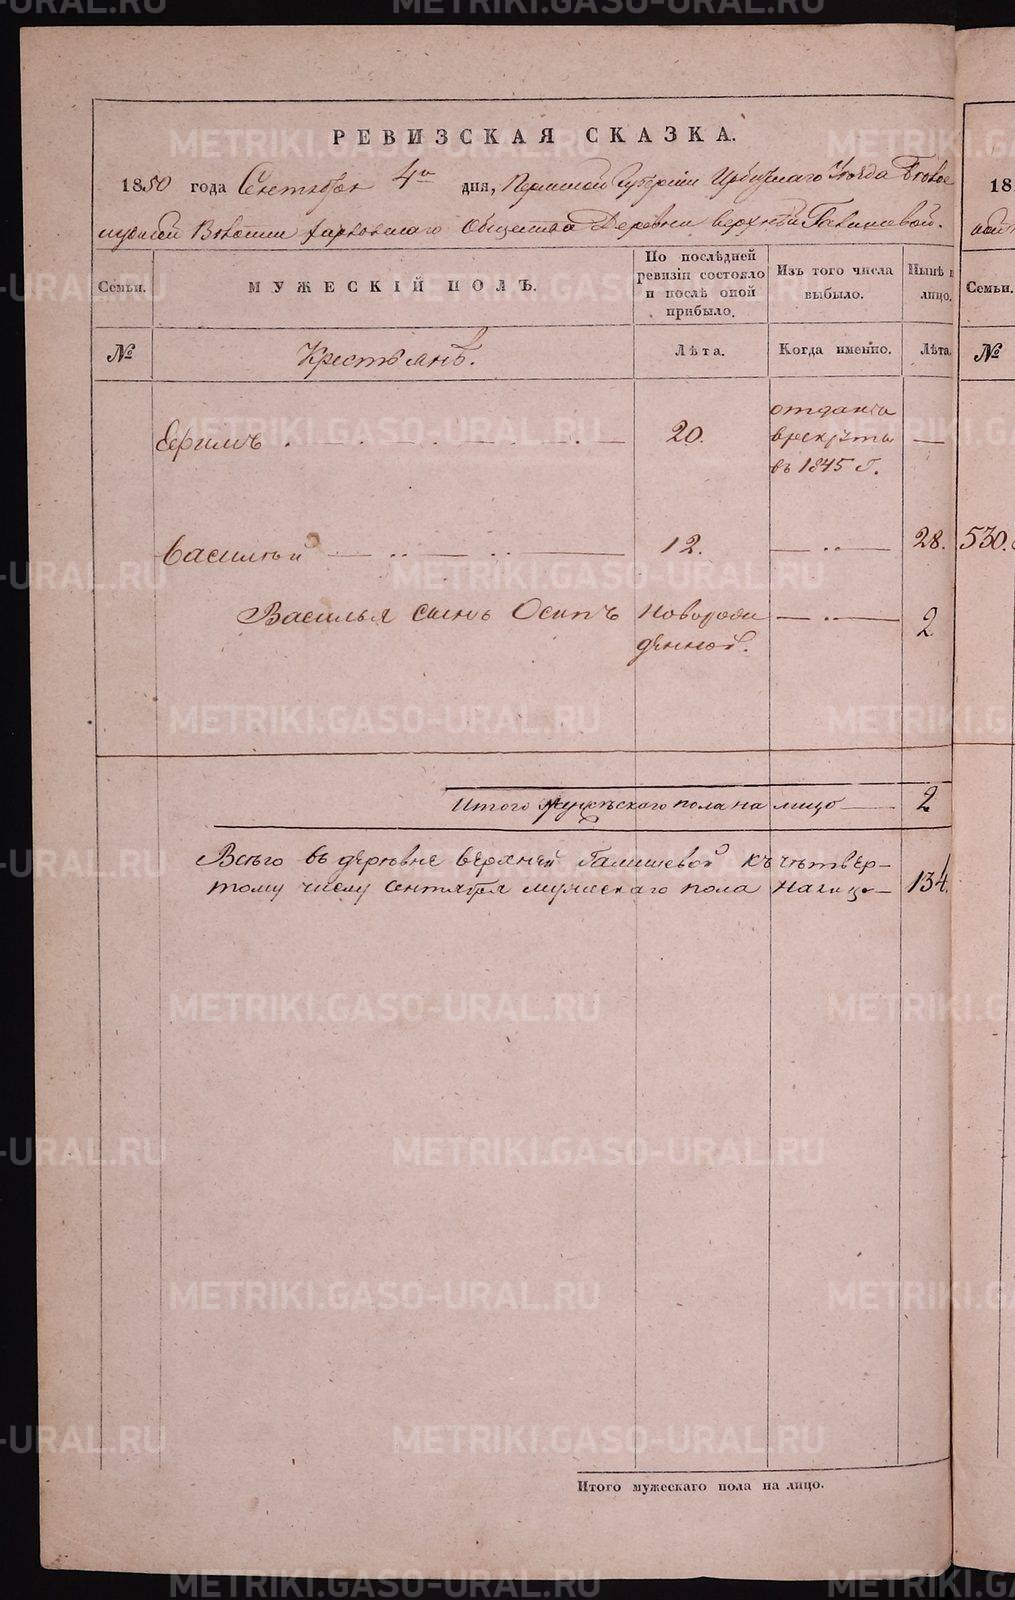 РЕВИЗСКАЯ СКАЗКА.
1850 года Сентября 4го дня, Пермской Губернии Ирбитскаго Уезда
Волости Харловскаго Общества Деревни верхней Галишевой.
Семьи.
МУЖЕСКІЙ ПОЛЪ.
По послѣдней ревизіи состояло и послѣ оной прибыло.
Изъ того числа выбыло.
Нынѣ
лицо.
Семьи.
№
Крестьянъ.
Лѣта.
Когда именно.
Лѣта.
№
Ефимъ
20.
отданъ
в рекруты
въ 1845 г.
—
Василей
12.
28.
530.
Василья сынъ Осипъ
новорож
денной.
2
Итого мужескаго пола на лицо
2
Всего въ деревне верхней Галишевой къ четвер-
тому числу сентября мужескаго пола налицо—
134.
Итого мужескаго пола на лицо.
METRIKI.GASO-URAL.RU